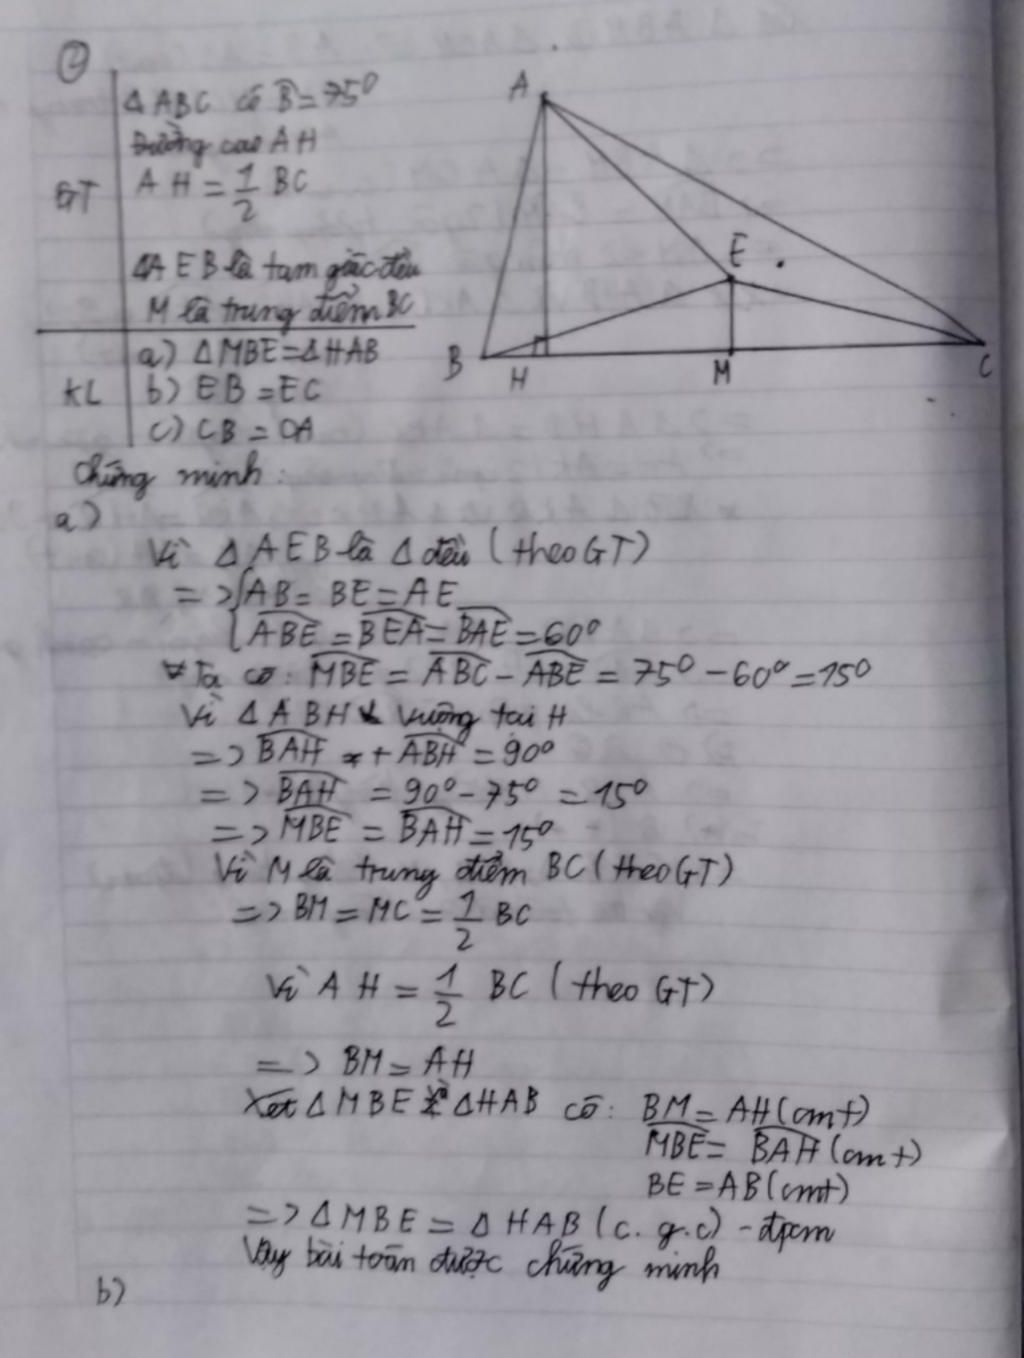 ②
Δ ABC có B̂ = 75⁰
Đường cao AH
GT
AH = 1/2 BC
ΔAEB là tam giác đều
M là trung điểm BC
KL
a) ΔMBE = ΔHAB
b) EB = EC
c) CB = CA
A
E
B
H
M
C
Chứng minh:
a)
Vì Δ AEB là Δ đều (theo GT)
=> { AB = BE = AE
ABE = BEA = BAE = 60⁰
Ta có: MBE = ABC - ABE = 75⁰ - 60⁰ = 15⁰
Vì ΔABH vuông tại H
=> BAH + ABH = 90⁰
=> BAH = 90⁰ - 75⁰ = 15⁰
=> MBE = BAH = 15⁰
Vì M là trung điểm BC (theo GT)
=> BM = MC = 1/2 BC
Vì AH = 1/2 BC (theo GT)
=> BM = AH
Xét ΔMBE và ΔHAB có: BM = AH (cmt)
MBE = BAH (cmt)
BE = AB (cmt)
=> ΔMBE = ΔHAB (c.g.c) - đpcm
Vậy bài toán được chứng minh
b)